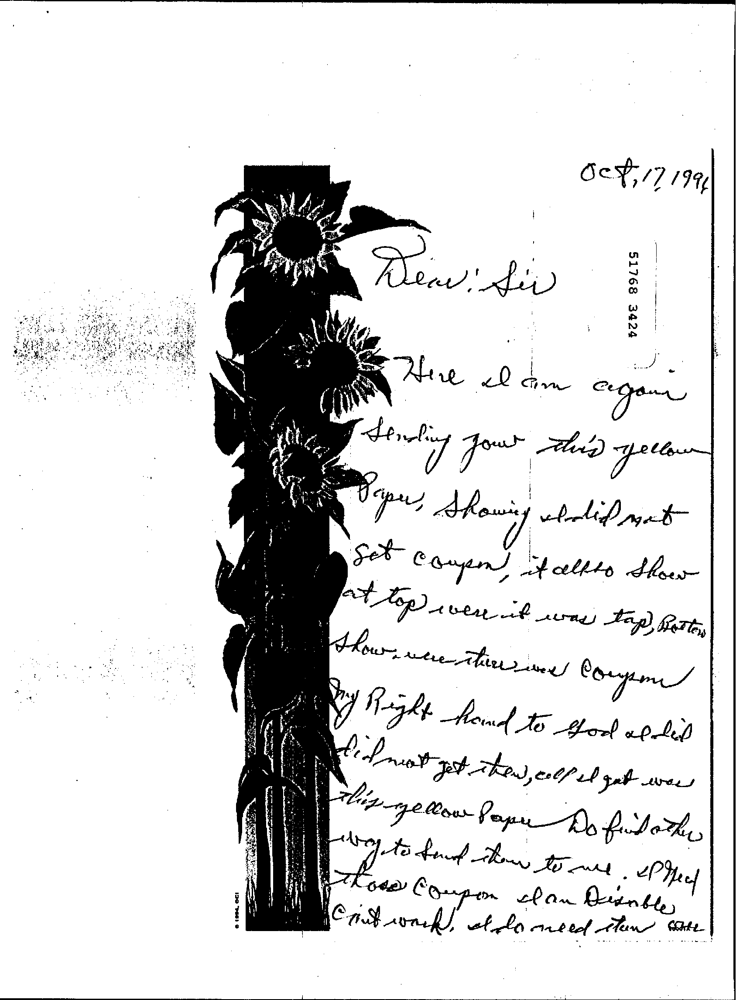 Oct, 17, 199
51768 3424
Dear: Sir
Here I am again
Sending your this yellow
Paper, Showing I did not
get coupon, it allso show
at top were it was tap, Bottom
Show were there was Coupon
My Right hand to God I did
did not get them, all I got was
this yellow Paper Do find other
way to send them to me. I Need
those Coupon I am Disable
Can't work. I do need them
© 1994, GCI